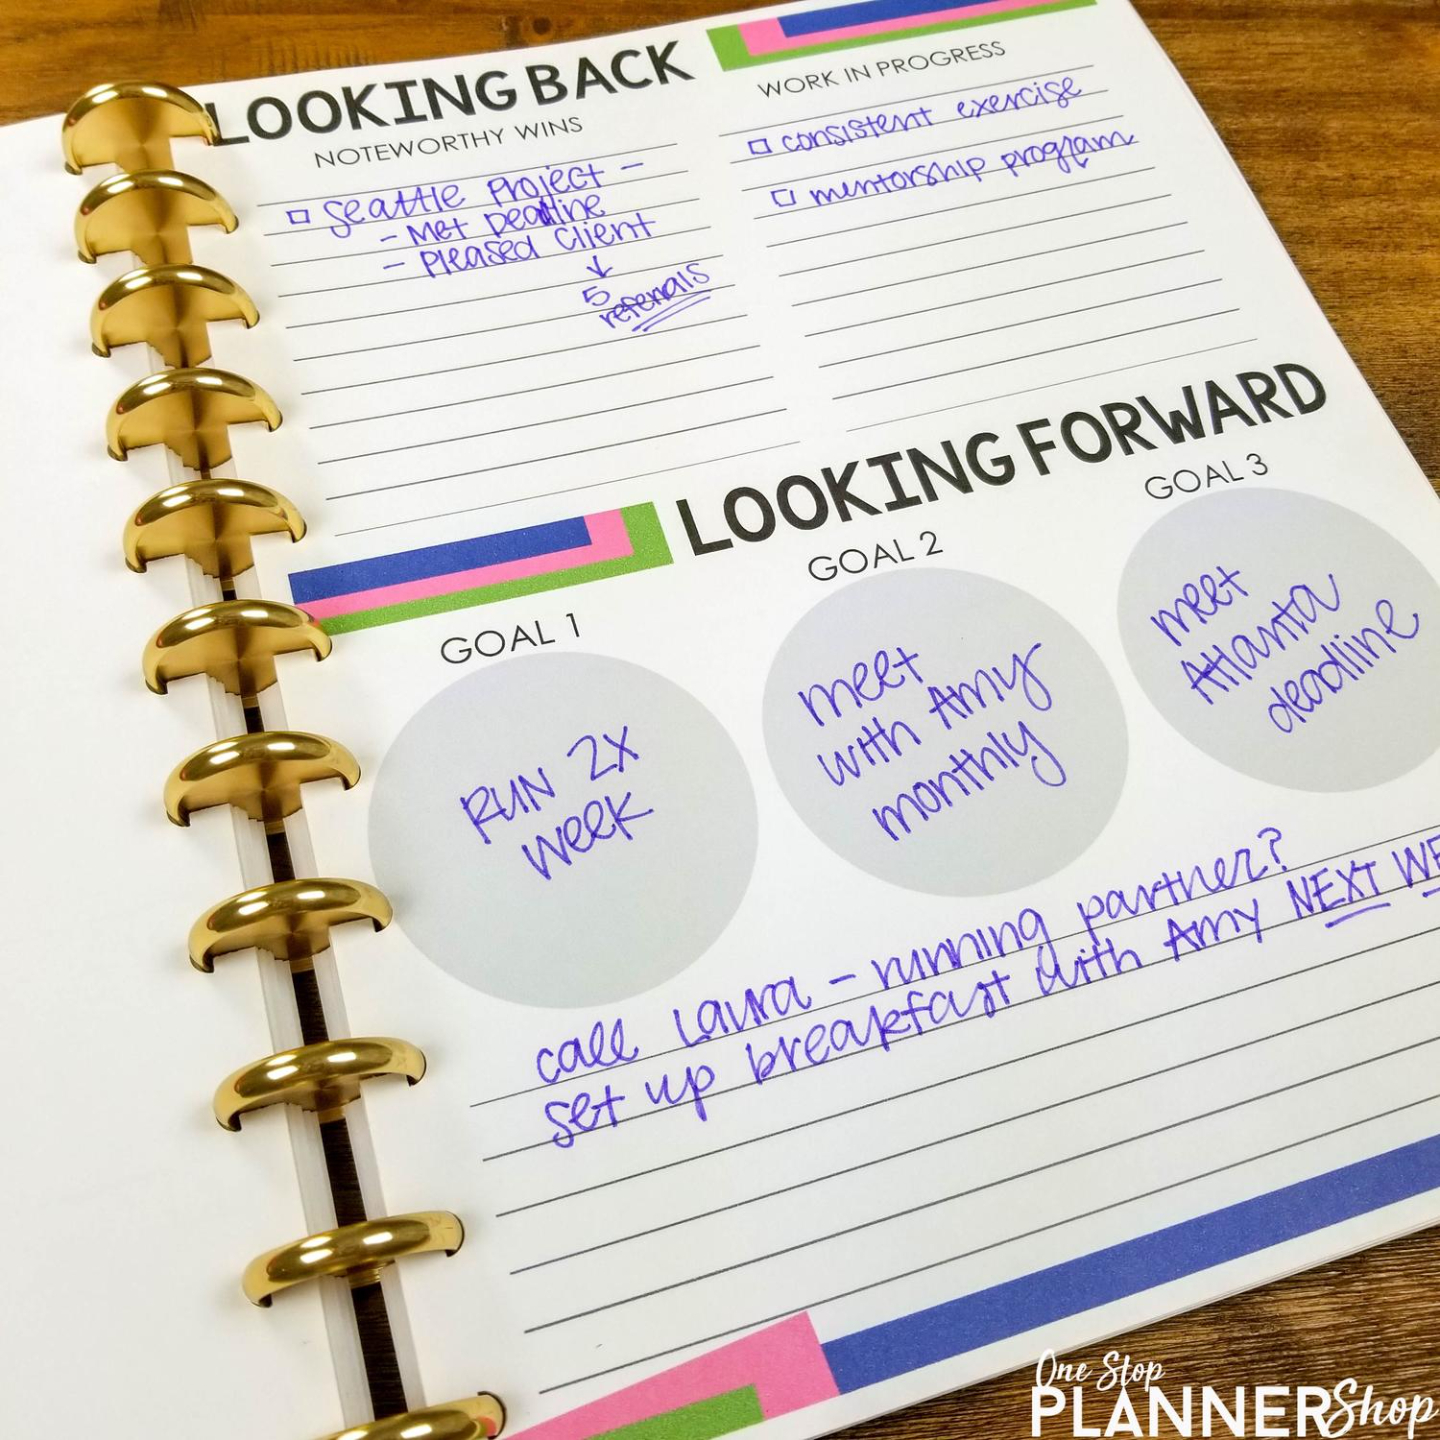 LOOKING BACK
NOTEWORTHY WINS
□ Seattle Project -
- Met Deadline
- Pleased Client
↓
5
referrals
WORK IN PROGRESS
□ consistent exercise
□ mentorship program
LOOKING FORWARD
GOAL 1
RUN 2X
week
GOAL 2
meet
with Amy
monthly
GOAL 3
meet
Atlanta
deadline
call Laura - running partner?
set up breakfast with Amy NEXT WE
One Stop
PLANNERShop